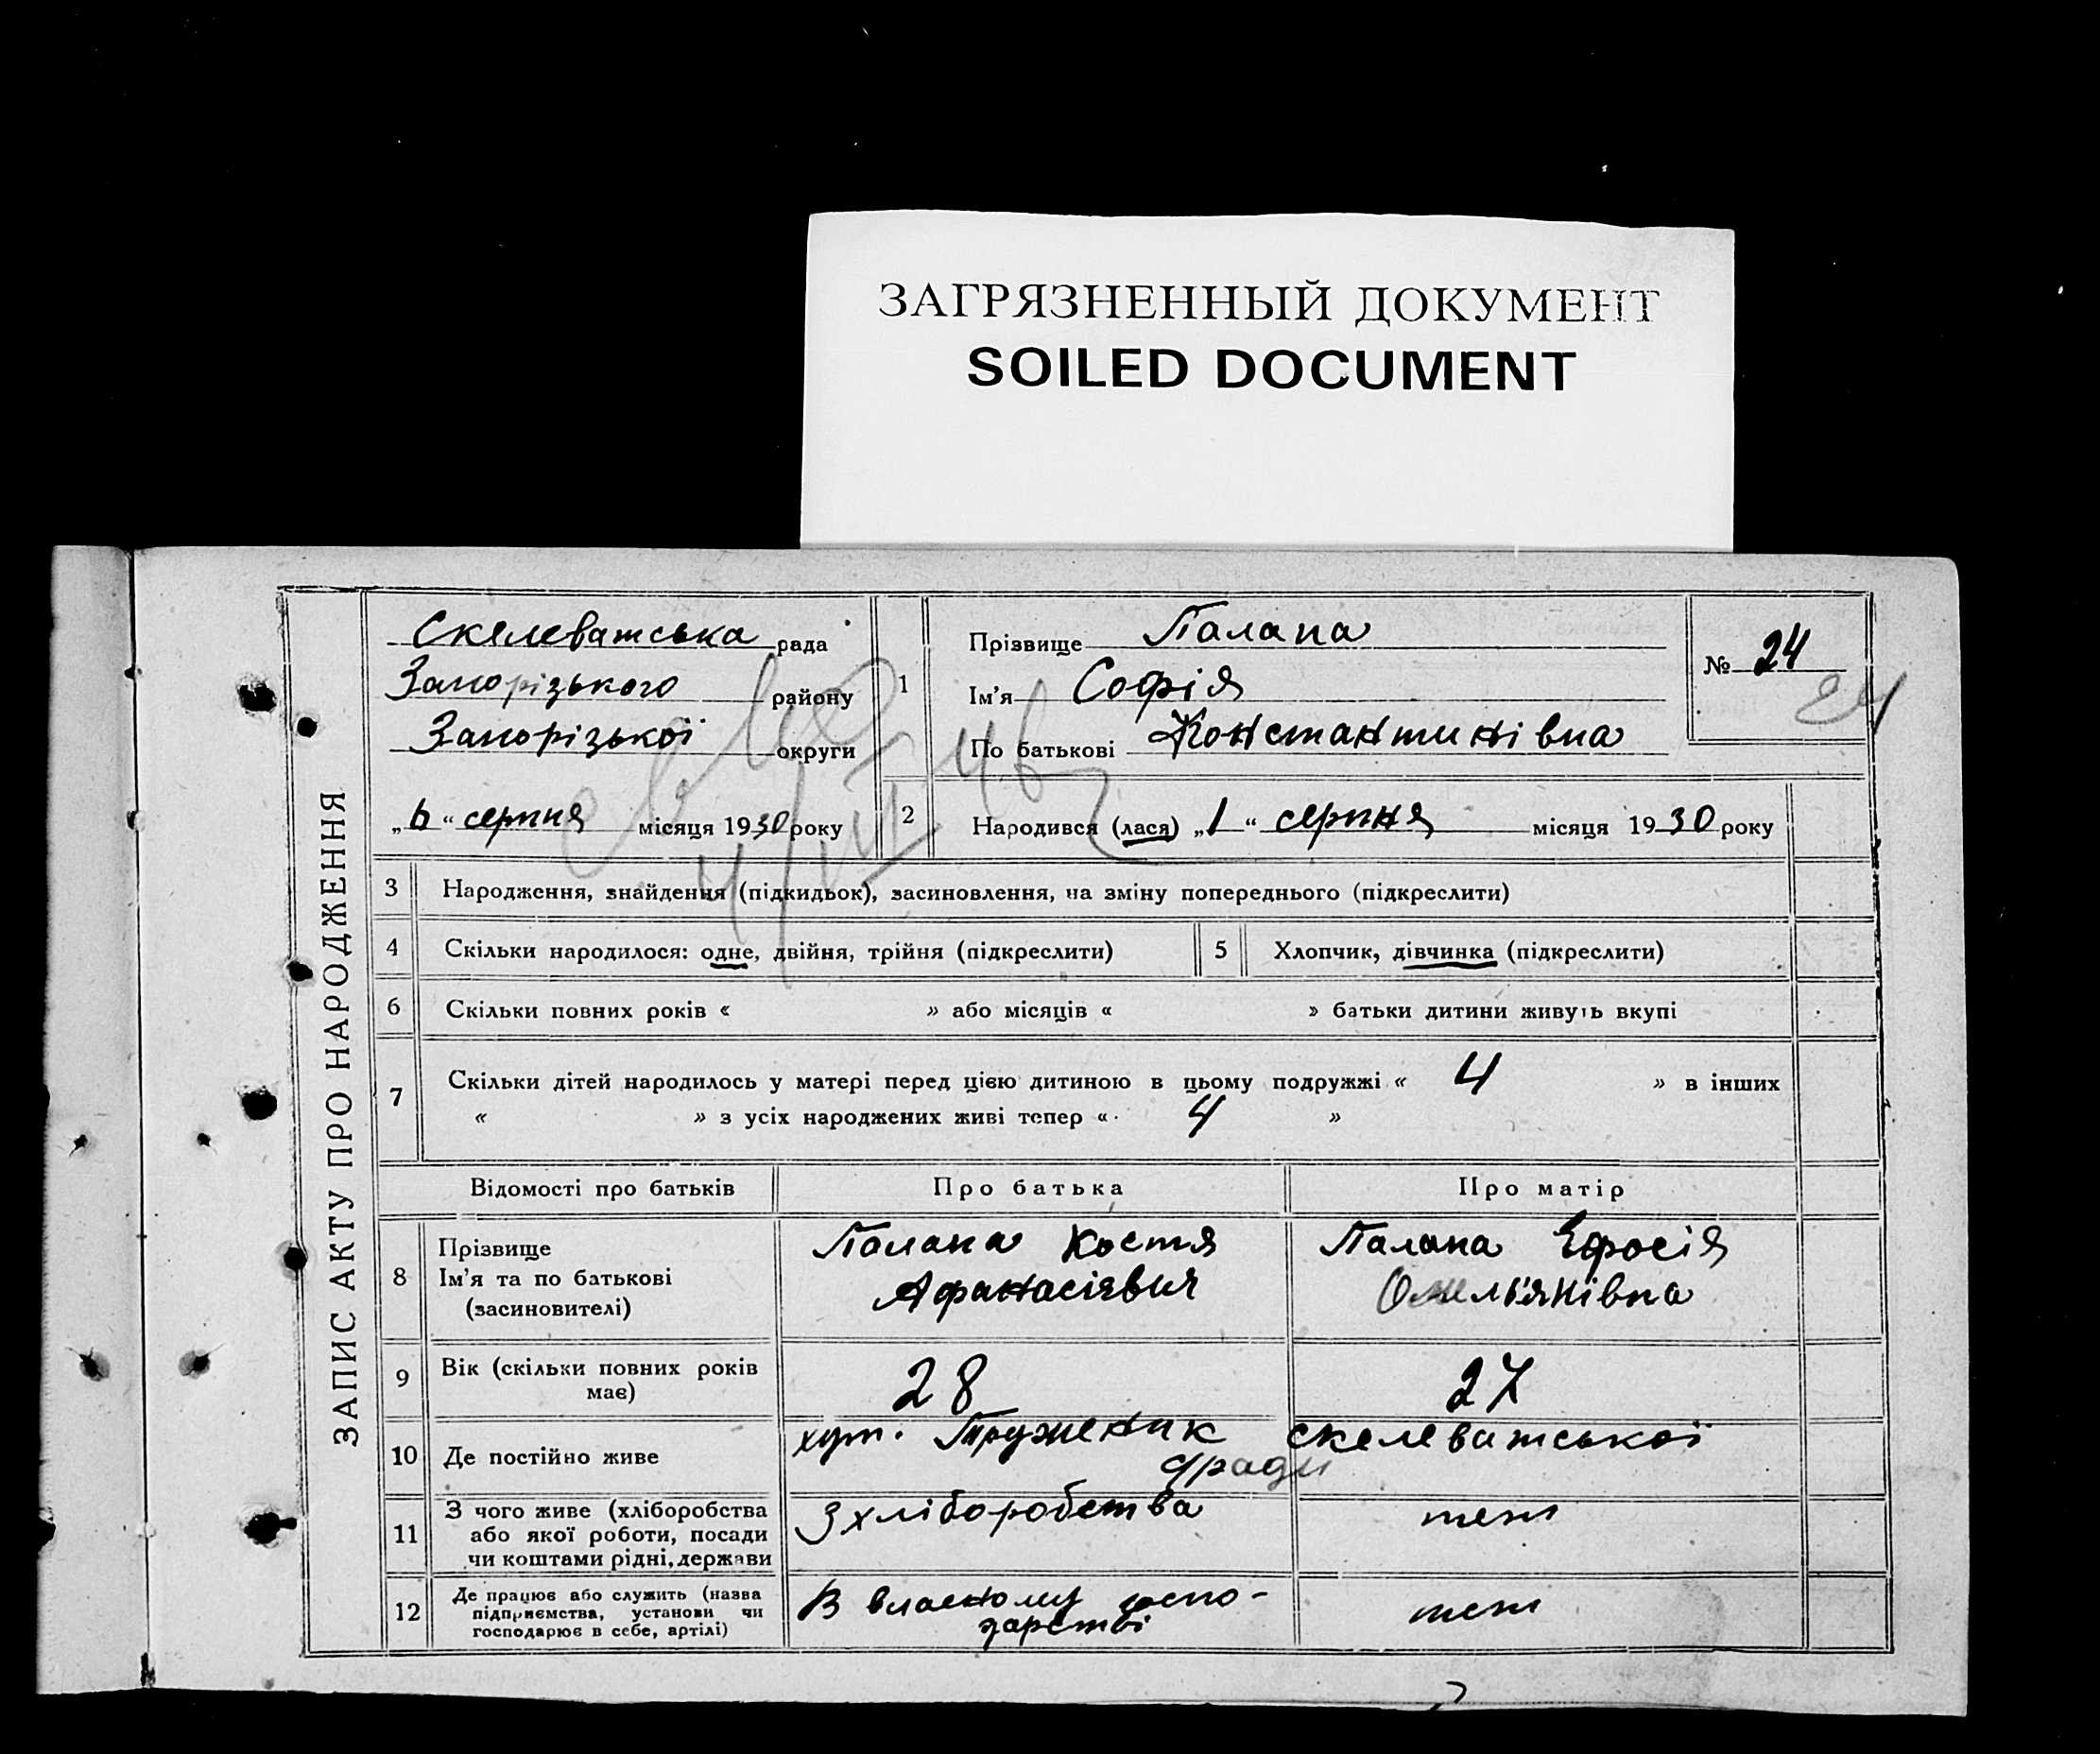 ЗАГРЯЗНЕННЫЙ ДОКУМЕНТ
SOILED DOCUMENT
ЗАПИС АКТУ ПРО НАРОДЖЕННЯ
Скелеватська рада
Запорізького району
Запорізької округи
„6“ серпня місяця 1930 року
1
Прізвище Палапа
Ім'я Софія
По батькові Константинівна
№ 24
24
2 Народився (лася) „1“ серпня місяця 1930 року
3 Народження, знайдення (підкидьок), засиновлення, на зміну попереднього (підкреслити)
4 Скільки народилося: одне, двійня, трійня (підкреслити) 5 Хлопчик, дівчинка (підкреслити)
6 Скільки повних років « » або місяців « » батьки дитини живуть вкупі
7 Скільки дітей народилось у матері перед цією дитиною в цьому подружжі « 4 » в інших
« » з усіх народжених живі тепер « 4 »
Відомості про батьків Про батька Про матір
8 Прізвище
Ім'я та по батькові
(засиновителі)
Палапа Костя
Афанасієвич
Палапа Ефросія
Омельянівна
9 Вік (скільки повних років
має)
28 27
10 Де постійно живе хут. Труженик Скелеватської
с/ради
11 З чого живе (хліборобства
або якої роботи, посади
чи коштами рідні, держави
З хліборобства теж
12 Де працює або служить (назва
підприємства, установи чи
господарює в себе, артілі)
В власному госпо-
дарстві
теж